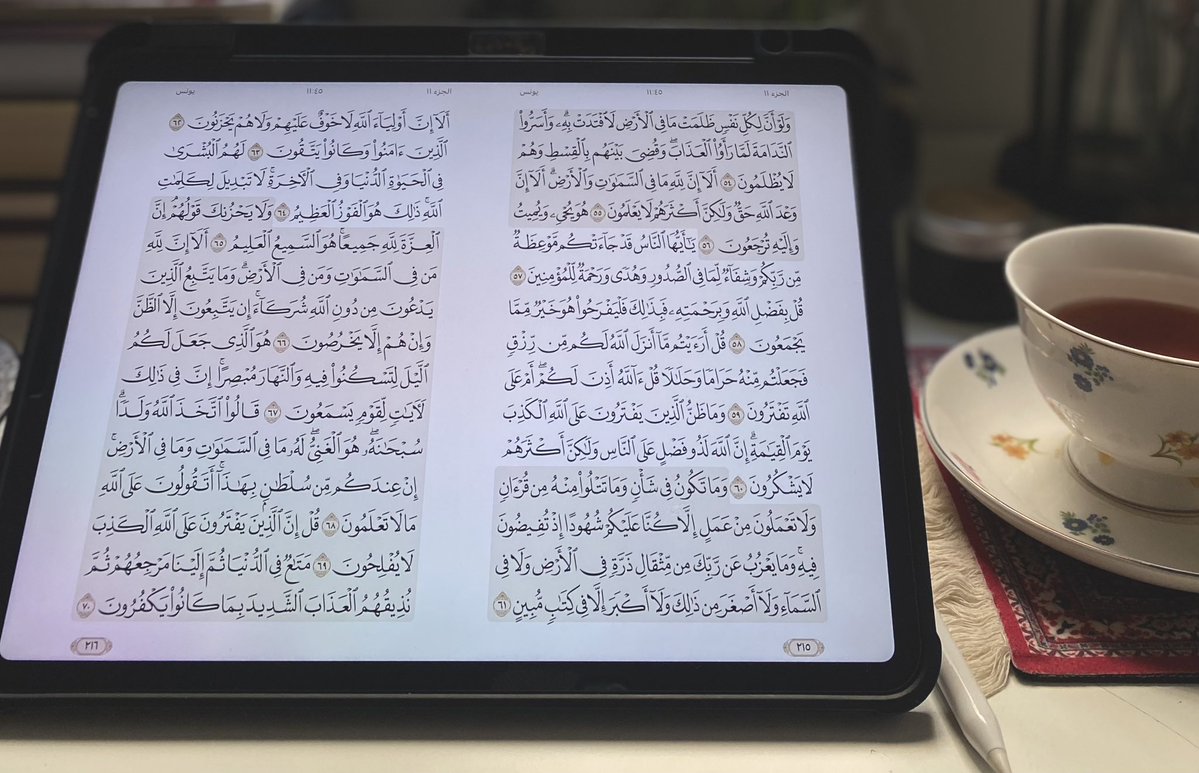 الجزء ١١ ١١:٤٥ يونس
وَلَوْ أَنَّ لِكُلِّ نَفْسٍ ظَلَمَتْ مَا فِي ٱلْأَرْضِ لَٱفْتَدَتْ بِهِۦۗ وَأَسَرُّوا۟
ٱلنَّدَامَةَ لَمَّا رَأَوُا۟ ٱلْعَذَابَۖ وَقُضِيَ بَيْنَهُم بِٱلْقِسْطِ وَهُمْ
لَا يُظْلَمُونَ ٥٤ أَلَآ إِنَّ لِلَّهِ مَا فِي ٱلسَّمَٰوَٰتِ وَٱلْأَرْضِۗ أَلَآ إِنَّ
وَعْدَ ٱللَّهِ حَقٌّ وَلَٰكِنَّ أَكْثَرَهُمْ لَا يَعْلَمُونَ ٥٥ هُوَ يُحْيِۦ وَيُمِيتُ
وَإِلَيْهِ تُرْجَعُونَ ٥٦ يَٰٓأَيُّهَا ٱلنَّاسُ قَدْ جَآءَتْكُم مَّوْعِظَةٌ
مِّن رَّبِّكُمْ وَشِفَآءٌ لِّمَا فِي ٱلصُّدُورِ وَهُدًى وَرَحْمَةٌ لِّلْمُؤْمِنِينَ ٥٧
قُلْ بِفَضْلِ ٱللَّهِ وَبِرَحْمَتِهِۦ فَبِذَٰلِكَ فَلْيَفْرَحُوا۟ هُوَ خَيْرٌ مِّمَّا
يَجْمَعُونَ ٥٨ قُلْ أَرَءَيْتُم مَّآ أَنزَلَ ٱللَّهُ لَكُم مِّن رِّزْقٍ
فَجَعَلْتُم مِّنْهُ حَرَامًا وَحَلَٰلًا قُلْ ءَآللَّهُ أَذِنَ لَكُمْۖ أَمْ عَلَى
ٱللَّهِ تَفْتَرُونَ ٥٩ وَمَا ظَنُّ ٱلَّذِينَ يَفْتَرُونَ عَلَى ٱللَّهِ ٱلْكَذِبَ
يَوْمَ ٱلْقِيَٰمَةِۗ إِنَّ ٱللَّهَ لَذُو فَضْلٍ عَلَى ٱلنَّاسِ وَلَٰكِنَّ أَكْثَرَهُمْ
لَا يَشْكُرُونَ ٦٠ وَمَا تَكُونُ فِي شَأْنٍ وَمَا تَتْلُوا۟ مِنْهُ مِن قُرْءَانٍ
وَلَا تَعْمَلُونَ مِنْ عَمَلٍ إِلَّا كُنَّا عَلَيْكُمْ شُهُودًا إِذْ تُفِيضُونَ
فِيهِۚ وَمَا يَعْزُبُ عَن رَّبِّكَ مِن مِّثْقَالِ ذَرَّةٍ فِي ٱلْأَرْضِ وَلَا فِي
ٱلسَّمَآءِ وَلَآ أَصْغَرَ مِن ذَٰلِكَ وَلَآ أَكْبَرَ إِلَّا فِي كِتَٰبٍ مُّبِينٍ ٦١
٢١٥
الجزء ١١ ١١:٤٥ يونس
أَلَآ إِنَّ أَوْلِيَآءَ ٱللَّهِ لَا خَوْفٌ عَلَيْهِمْ وَلَا هُمْ يَحْزَنُونَ ٦٢
ٱلَّذِينَ ءَامَنُوا۟ وَكَانُوا۟ يَتَّقُونَ ٦٣ لَهُمُ ٱلْبُشْرَىٰ
فِي ٱلْحَيَوٰةِ ٱلدُّنْيَا وَفِي ٱلْأَخِرَةِۚ لَا تَبْدِيلَ لِكَلِمَٰتِ
ٱللَّهِۚ ذَٰلِكَ هُوَ ٱلْفَوْزُ ٱلْعَظِيمُ ٦٤ وَلَا يَحْزُنكَ قَوْلُهُمْۘ إِنَّ
ٱلْعِزَّةَ لِلَّهِ جَمِيعًاۚ هُوَ ٱلسَّمِيعُ ٱلْعَلِيمُ ٦٥ أَلَآ إِنَّ لِلَّهِ
مَن فِي ٱلسَّمَٰوَٰتِ وَمَن فِي ٱلْأَرْضِۗ وَمَا يَتَّبِعُ ٱلَّذِينَ
يَدْعُونَ مِن دُونِ ٱللَّهِ شُرَكَآءَۚ إِن يَتَّبِعُونَ إِلَّا ٱلظَّنَّ
وَإِنْ هُمْ إِلَّا يَخْرُصُونَ ٦٦ هُوَ ٱلَّذِي جَعَلَ لَكُمُ
ٱلَّيْلَ لِتَسْكُنُوا۟ فِيهِ وَٱلنَّهَارَ مُبْصِرًاۚ إِنَّ فِي ذَٰلِكَ
لَءَايَٰتٍ لِّقَوْمٍ يَسْمَعُونَ ٦٧ قَالُوا۟ ٱتَّخَذَ ٱللَّهُ وَلَدًاۗ
سُبْحَٰنَهُۥۖ هُوَ ٱلْغَنِيُّۖ لَهُۥ مَا فِي ٱلسَّمَٰوَٰتِ وَمَا فِي ٱلْأَرْضِۚ
إِنْ عِندَكُم مِّن سُلْطَٰنٍۭ بِهَٰذَآۚ أَتَقُولُونَ عَلَى ٱللَّهِ
مَا لَا تَعْلَمُونَ ٦٨ قُلْ إِنَّ ٱلَّذِينَ يَفْتَرُونَ عَلَى ٱللَّهِ ٱلْكَذِبَ
لَا يُفْلِحُونَ ٦٩ مَتَٰعٌ فِي ٱلدُّنْيَا ثُمَّ إِلَيْنَا مَرْجِعُهُمْ ثُمَّ
نُذِيقُهُمُ ٱلْعَذَابَ ٱلشَّدِيدَ بِمَا كَانُوا۟ يَكْفُرُونَ ٧٠
٢١٦